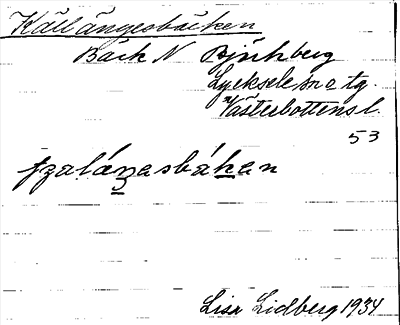 Källängesbäcken
Bäck N Björkberg
Lycksele sn o tg.
Västerbottens l.
53
Lisa Lidberg 1934